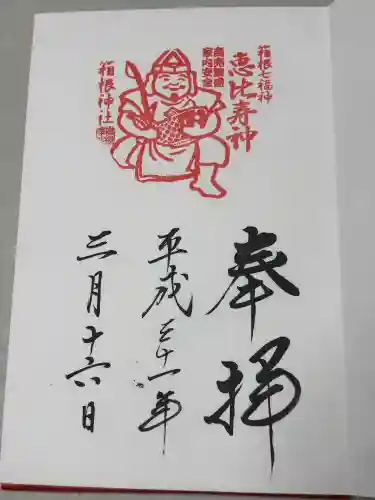 箱根七福神
恵比寿神
商売繁盛
家内安全
箱根神社
奉拝
平成三十一年
三月十六日